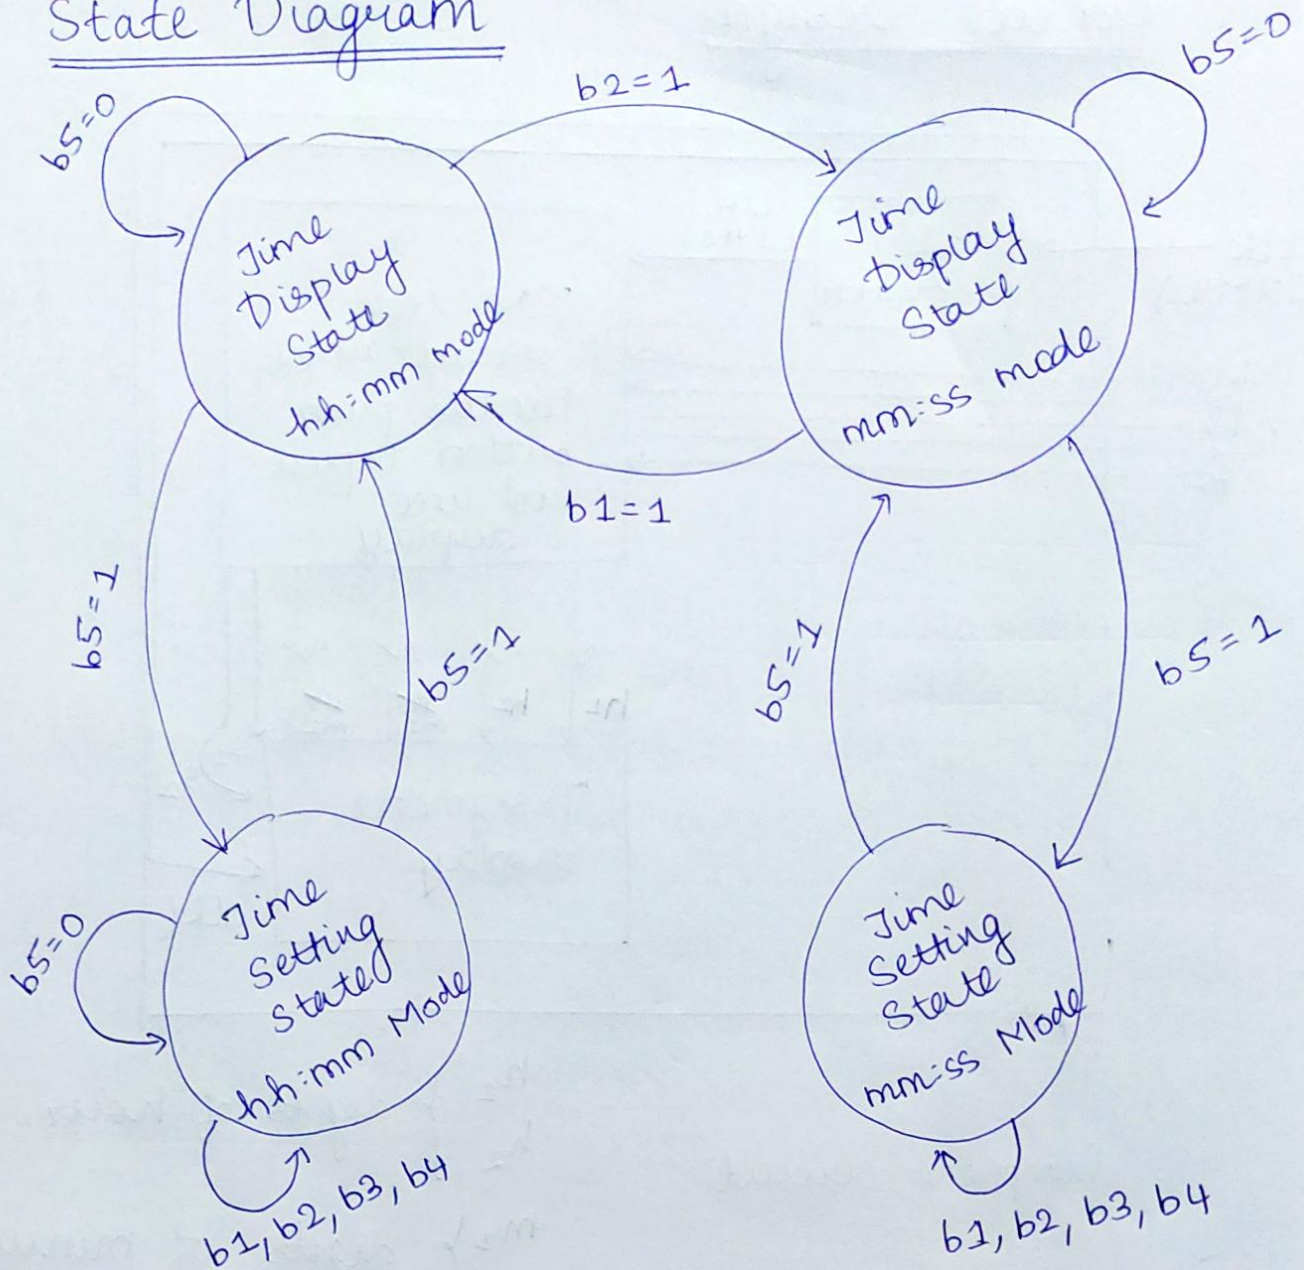 State Diagram
b5=0
b2=1
b5=0
Time
Display
State
hh:mm mode
Time
Display
State
mm:ss mode
b1=1
b5=1
b5=1
b5=1
b5=1
Time
Setting
State
hh:mm Mode
b5=0
b1, b2, b3, b4
Time
Setting
State
mm:ss Mode
b1, b2, b3, b4